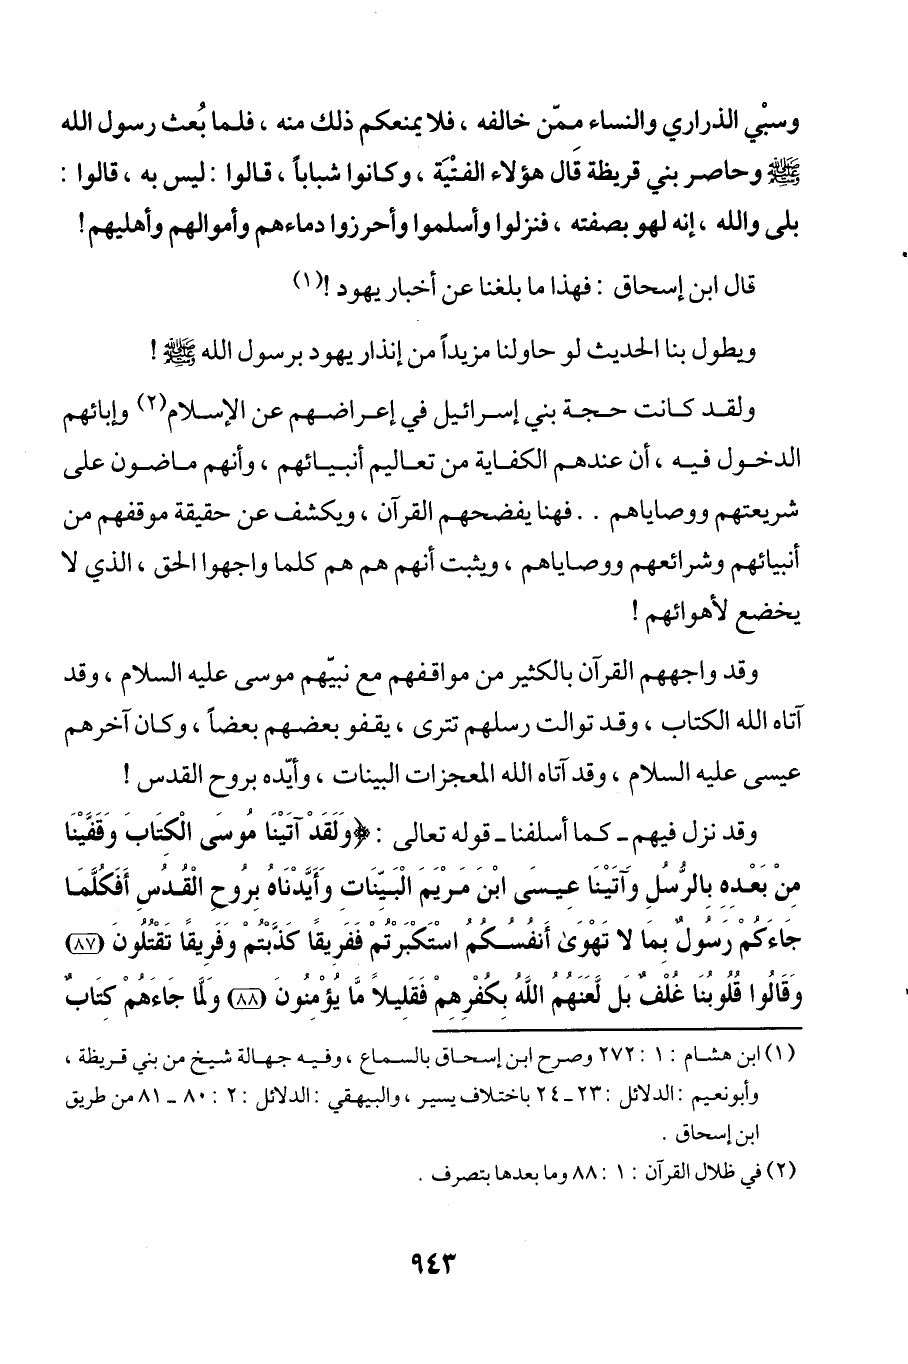 وسبْي الذراري والنساء ممّن خالفه ، فلا يمنعكم ذلك منه ، فلما بُعث رسول الله
ﷺ وحاصر بني قريظة قال هؤلاء الفتْيَة ، وكانوا شباباً ، قالوا : ليس به ، قالوا :
بلى والله ، إنه لهو بصفته ، فنزلوا وأسلموا وأحرزوا دماءهم وأموالهم وأهليهم!
قال ابن إسحاق : فهذا ما بلغنا عن أخبار يهود !(١)
ويطول بنا الحديث لو حاولنا مزيداً من إنذار يهود برسول الله ﷺ !
ولقد كانت حجة بني إسرائيل في إعراضهم عن الإسلام(٢) وإبائهم
الدخول فيه ، أن عندهم الكفاية من تعاليم أنبيائهم ، وأنهم ماضون على
شريعتهم ووصاياهم . . فهنا يفضحهم القرآن ، ويكشف عن حقيقة موقفهم من
أنبيائهم وشرائعهم ووصاياهم ، ويثبت أنهم هم هم كلما واجهوا الحق ، الذي لا
يخضع لأهوائهم !
وقد واجههم القرآن بالكثير من مواقفهم مع نبيّهم موسى عليه السلام ، وقد
آتاه الله الكتاب ، وقد توالت رسلهم تترى ، يقفو بعضهم بعضاً ، وكان آخرهم
عيسى عليه السلام ، وقد آتاه الله المعجزات البينات ، وأيّده بروح القدس !
وقد نزل فيهم ـ كما أسلفنا ـ قوله تعالى : ﴿وَلَقَدْ آتَيْنَا مُوسَى الْكِتَابَ وَقَفَّيْنَا
مِنْ بَعْدِهِ بِالرُّسُلِ وَآتَيْنَا عِيسَى ابْنَ مَرْيَمَ الْبَيِّنَاتِ وَأَيَّدْنَاهُ بِرُوحِ الْقُدُسِ أَفَكُلَّمَا
جَاءَكُمْ رَسُولٌ بِمَا لا تَهْوَىٰ أَنفُسُكُمُ اسْتَكْبَرْتُمْ فَفَرِيقًا كَذَّبْتُمْ وَفَرِيقًا تَقْتُلُونَ (٨٧)
وَقَالُوا قُلُوبُنَا غُلْفٌ بَل لَّعَنَهُمُ اللَّهُ بِكُفْرِهِمْ فَقَلِيلاً مَّا يُؤْمِنُونَ (٨٨) وَلَمَّا جَاءَهُمْ كِتَابٌ
(١) ابن هشام : ١ : ٢٧٢ وصرح ابن إسحاق بالسماع ، وفيه جهالة شيخ من بني قريظة ،
وأبونعيم : الدلائل : ٢٣ ـ ٢٤ باختلاف يسير ، والبيهقي : الدلائل : ٢ : ٨٠ ـ ٨١ من طريق
ابن إسحاق .
(٢) في ظلال القرآن : ١ : ٨٨ وما بعدها بتصرف .
٩٤٣